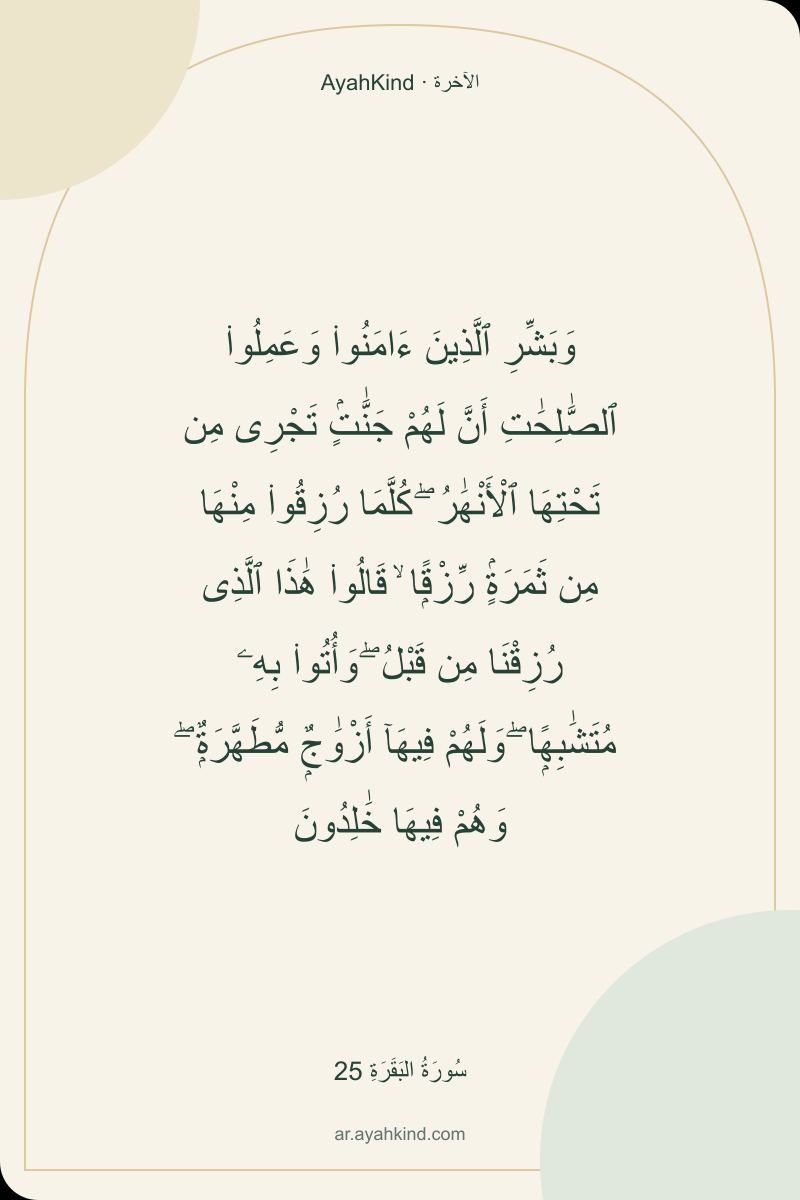 AyahKind · الآخرة
وَبَشِّرِ ٱلَّذِينَ ءَامَنُوا۟ وَعَمِلُوا۟
ٱلصَّٰلِحَٰتِ أَنَّ لَهُمْ جَنَّٰتٍۢ تَجْرِى مِن
تَحْتِهَا ٱلْأَنْهَٰرُ ۖ كُلَّمَا رُزِقُوا۟ مِنْهَا
مِن ثَمَرَةٍۢ رِّزْقًۭا ۙ قَالُوا۟ هَٰذَا ٱلَّذِى
رُزِقْنَا مِن قَبْلُ ۖ وَأُتُوا۟ بِهِۦ
مُتَشَٰبِهًۭا ۖ وَلَهُمْ فِيهَآ أَزْوَٰجٌۭ مُّطَهَّرَةٌۭ ۖ
وَهُمْ فِيهَا خَٰلِدُونَ
سُورَةُ البَقَرَةِ 25
ar.ayahkind.com